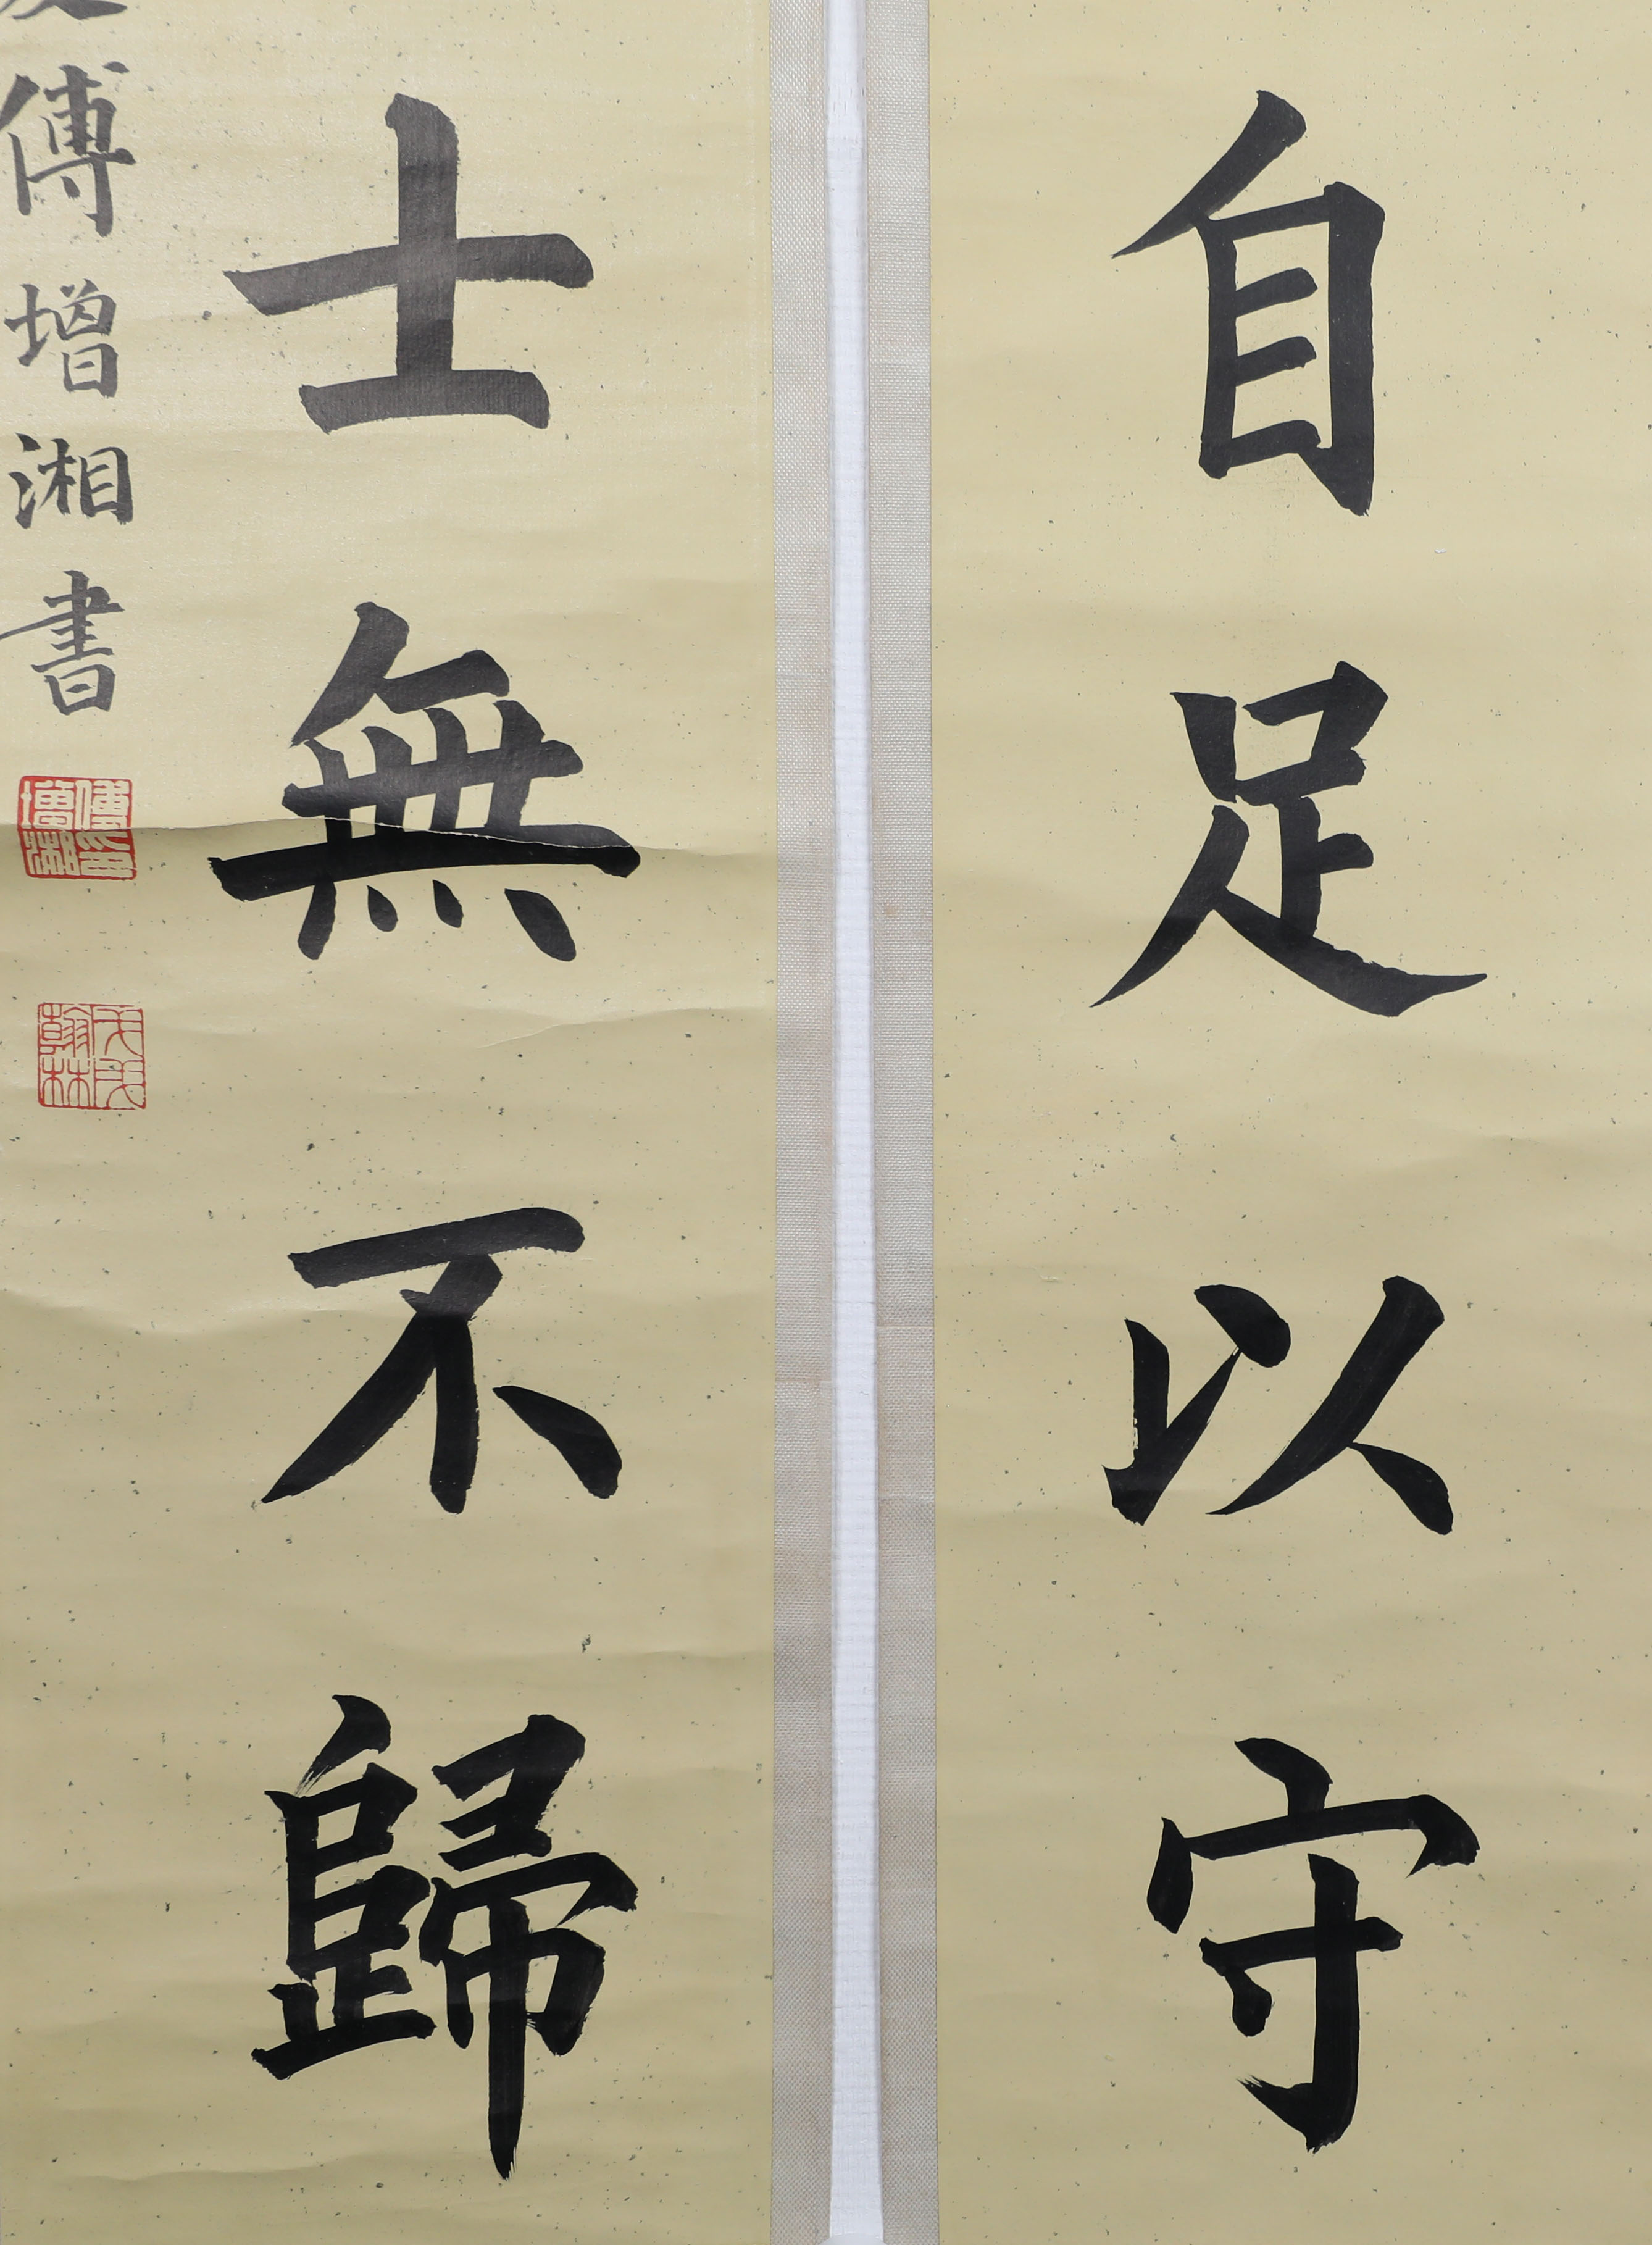 自足以守
士無不歸
傅增湘書
傅增湘印
戊戌翰林